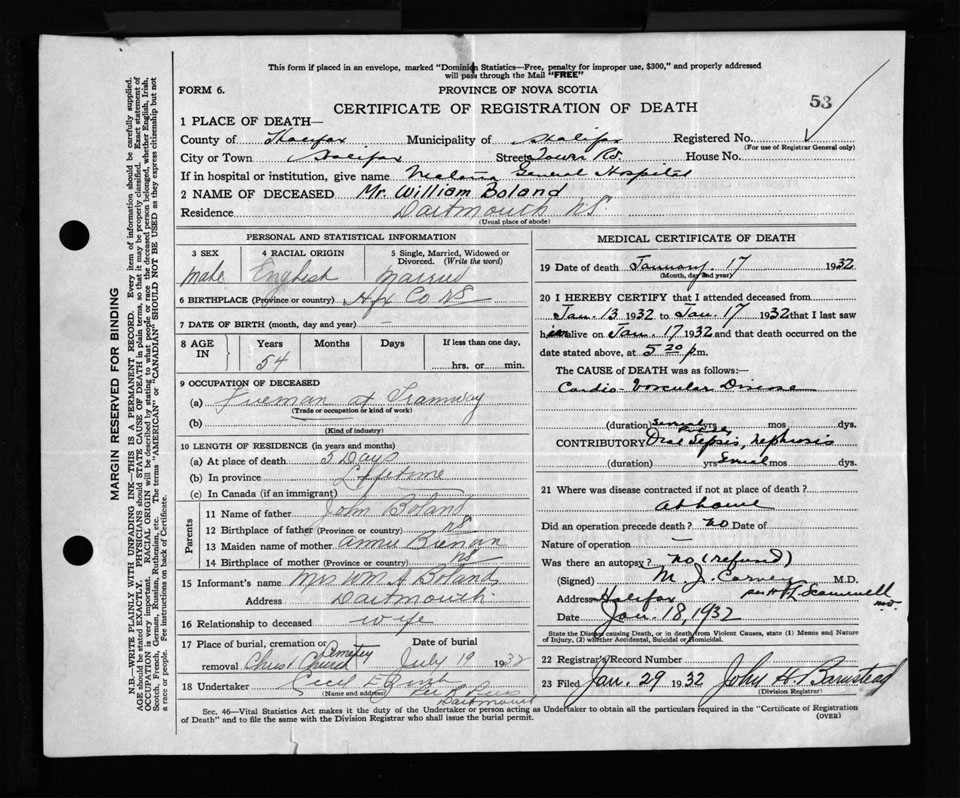 This form if placed in an envelope, marked "Dominion Statistics—Free, penalty for improper use, $300," and properly addressed
will pass through the Mail "FREE"
FORM 6.
PROVINCE OF NOVA SCOTIA
53
CERTIFICATE OF REGISTRATION OF DEATH
1 PLACE OF DEATH—
County of Halifax Municipality of Halifax Registered No.
(For use of Registrar General only)
City or Town Halifax Street Town Rd. House No.
If in hospital or institution, give name Victoria General Hospital
2 NAME OF DECEASED Mr. William Boland
Residence Dartmouth NS
(Usual place of abode)
PERSONAL AND STATISTICAL INFORMATION
3 SEX
Male
4 RACIAL ORIGIN
English
5 Single, Married, Widowed or
Divorced. (Write the word)
Married
6 BIRTHPLACE (Province or country) Hfx Co NS
7 DATE OF BIRTH (month, day and year) —
8 AGE
IN
Years Months Days If less than one day,
54
hrs. or min.
9 OCCUPATION OF DECEASED
(a) Fireman at Tramway
(Trade or occupation or kind of work)
(b)
(Kind of industry)
10 LENGTH OF RESIDENCE (in years and months)
(a) At place of death 5 Days
(b) In province Lifetime
(c) In Canada (if an immigrant)
Parents
11 Name of father John Boland
12 Birthplace of father (Province or country) NS
13 Maiden name of mother Annie
14 Birthplace of mother (Province or country) NS
15 Informant's name Mrs Wm A. Boland
Address Dartmouth
16 Relationship to deceased wife
17 Place of burial, cremation or
removal Christ Church Cemetery
Date of burial
July 19 1932
18 Undertaker Cecil E
(Name and address)
Dartmouth
MEDICAL CERTIFICATE OF DEATH
19 Date of death January 17 1932
(Month, day and year)
20 I HEREBY CERTIFY that I attended deceased from
Jan. 13 1932 to Jan. 17 1932 that I last saw
him alive on Jan. 17 1932 and that death occurred on the
date stated above, at 5 20 p.m.
The CAUSE of DEATH was as follows:—
Cardio-Vascular Disease
(duration) several yrs. mos dys.
CONTRIBUTORY Oral Sepsis, nephrosis
(duration) yrs several mos dys.
21 Where was disease contracted if not at place of death?
at home
Did an operation precede death? no Date of
Nature of operation —
Was there an autopsy? no (refused)
(Signed) M. J. Carney M.D.
per H. Scammell
M.D.
Address Halifax
Date Jan. 18, 1932
State the Disease causing Death, or in death from Violent Causes, state (1) Means and Nature
of Injury, (2) whether Accidental, Suicidal or Homicidal.
22 Registrar's Record Number
23 Filed Jan. 29 1932 John H. Barnstead
(Division Registrar)
Sec. 46—Vital Statistics Act makes it the duty of the Undertaker or person acting as Undertaker to obtain all the particulars required in the "Certificate of Registration
of Death" and to file the same with the Division Registrar who shall issue the burial permit.
(OVER)
MARGIN RESERVED FOR BINDING
N.B.—WRITE PLAINLY WITH UNFADING INK—THIS IS A PERMANENT RECORD. Every item of information should be carefully supplied.
AGE should be stated EXACTLY. PHYSICIANS should STATE CAUSE OF DEATH in plain terms, so that it may be properly classified. Exact statement of
OCCUPATION is very important. RACIAL ORIGIN will be described by stating to what people or race the deceased person belonged, whether English, Irish,
Scotch, French, German, Russian, Ruthenian, etc. The terms "AMERICAN" or "CANADIAN" SHOULD NOT BE USED as they express citizenship but not
a race or people. See instructions on back of Certificate.